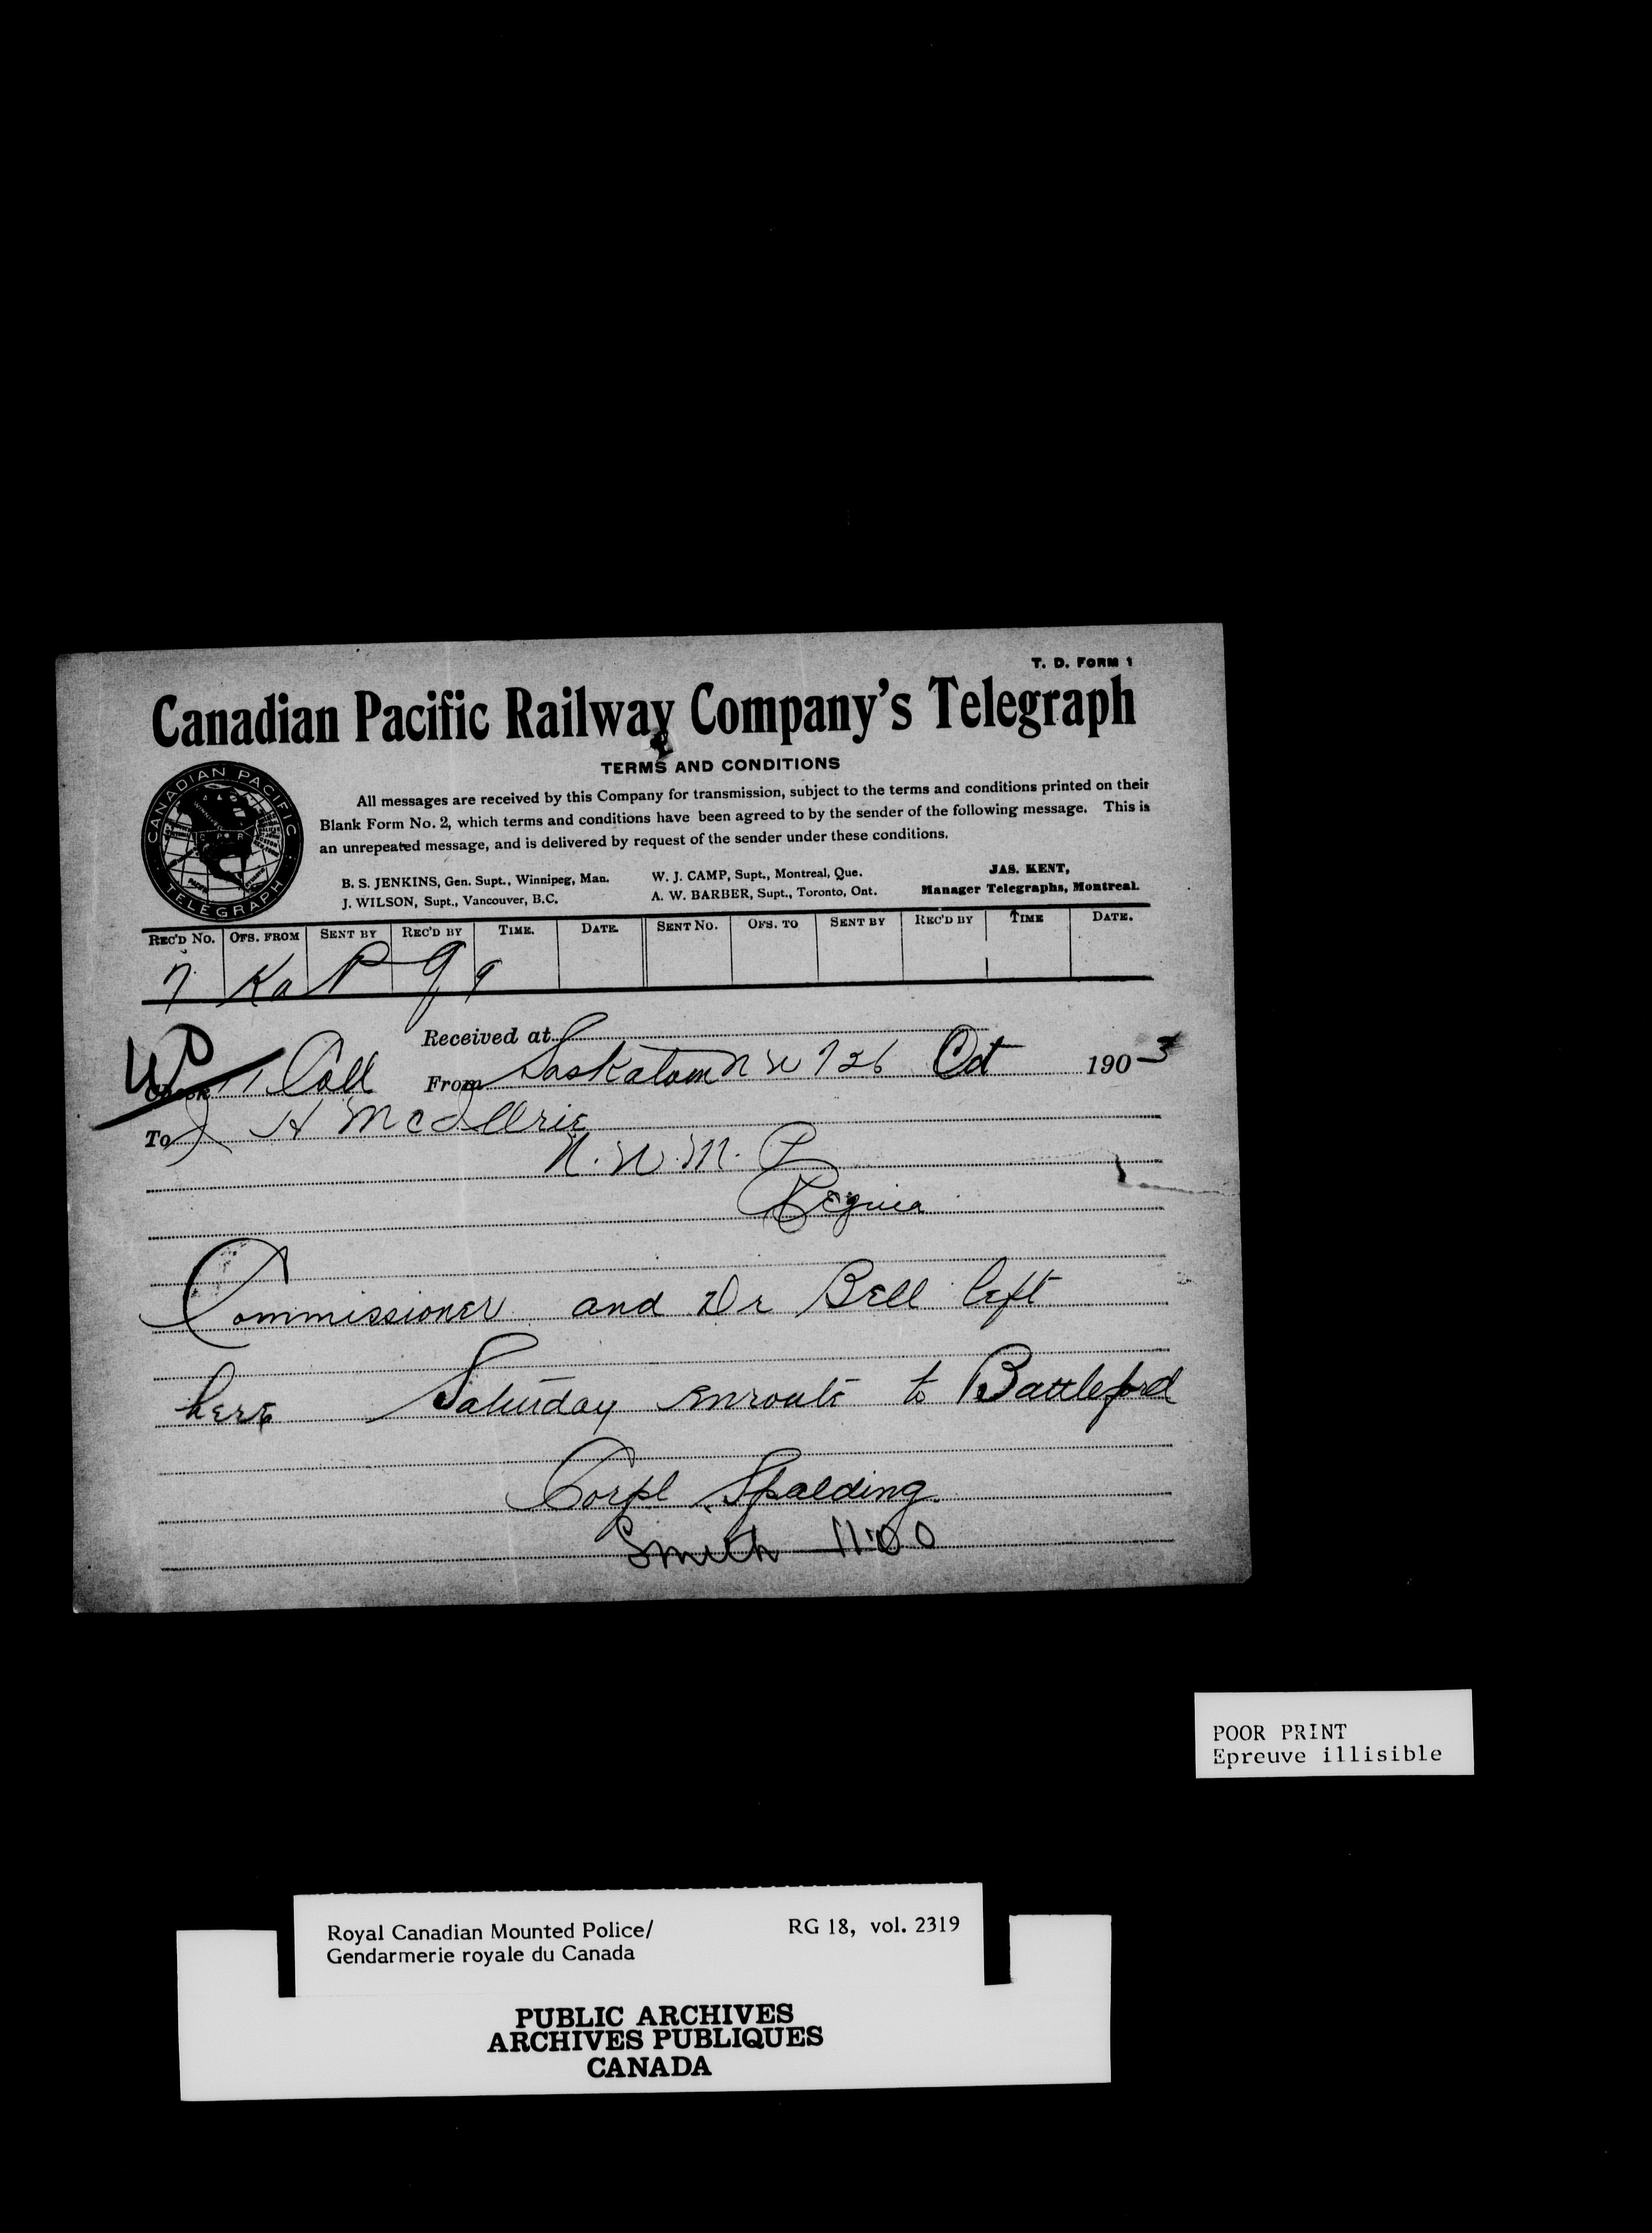 T. D. FORM 1
Canadian Pacific Railway Company's Telegraph
TERMS AND CONDITIONS
CANADIAN PACIFIC
TELEGRAPH
All messages are received by this Company for transmission, subject to the terms and conditions printed on their
Blank Form No. 2, which terms and conditions have been agreed to by the sender of the following message. This is
an unrepeated message, and is delivered by request of the sender under these conditions.
B. S. JENKINS, Gen. Supt., Winnipeg, Man. W. J. CAMP, Supt., Montreal, Que. JAS. KENT,
J. WILSON, Supt., Vancouver, B.C. A. W. BARBER, Supt., Toronto, Ont. Manager Telegraphs, Montreal.
REC'D NO. OFS. FROM SENT BY REC'D BY TIME. DATE. SENT NO. OFS. TO SENT BY REC'D BY TIME DATE.
7 Ka P
Received at
11 Coll From Saskatoon 26 Oct 1903
To J H McIllrie
N. W. M. P
Regina
Commissioner and Dr Bell left
here Saturday enroute to Battleford
Corpl Spalding.
Smith 11:00
POOR PRINT
Epreuve illisible
Royal Canadian Mounted Police/ RG 18, vol. 2319
Gendarmerie royale du Canada
PUBLIC ARCHIVES
ARCHIVES PUBLIQUES
CANADA